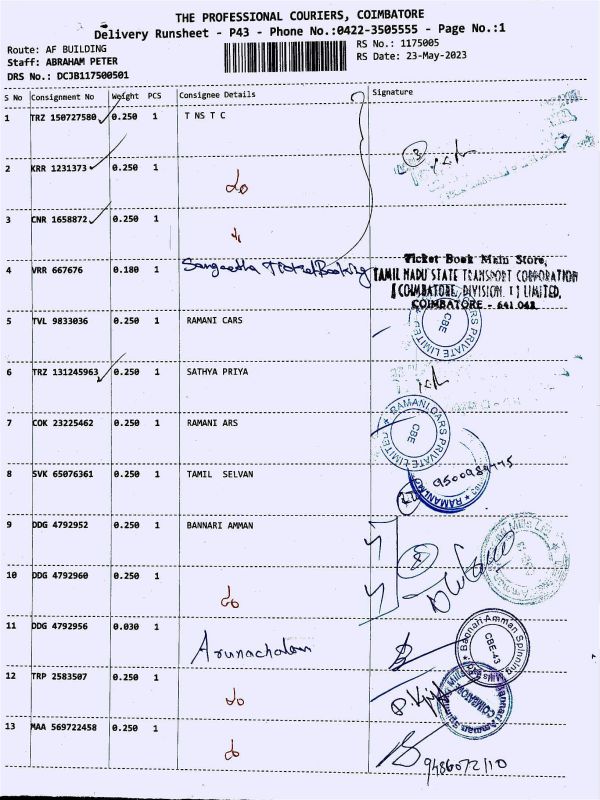 THE PROFESSIONAL COURIERS, COIMBATORE
Delivery Runsheet - P43 - Phone No.:0422-3505555 - Page No.:1
Route: AF BUILDING
Staff: ABRAHAM PETER
DRS No.: DCJB117500501
RS No.: 1175005
RS Date: 23-May-2023
S No Consignment No Weight PCS Consignee Details Signature
1 TRZ 150727580 0.250 1 T NS T C
2 KRR 1231373 0.250 1 do
3 CNR 1658872 0.250 1
4 VRR 667676 0.180 1 Sangeetha Ticket Booking
Ticket Book Main Store,
TAMIL NADU STATE TRANSPORT CORPORATION
[COIMBATORE, DIVISION I] LIMITED,
COIMBATORE - 641 043
5 TVL 9833036 0.250 1 RAMANI CARS
CARS PRIVATE LIMITED
CBE
6 TRZ 131245963 0.250 1 SATHYA PRIYA
7 COK 23225462 0.250 1 RAMANI ARS
RAMANI CARS PRIVATE LIMITED
CBE
8 SVK 65076361 0.250 1 TAMIL SELVAN
RAMANI
9 DDG 4792952 0.250 1 BANNARI AMMAN
10 DDG 4792960 0.250 1 do
11 DDG 4792956 0.030 1 Arunachalam
Bannari Amman Spinning Mills Ltd
CBE-43
12 TRP 2583507 0.250 1 do
Bannari Amman Spinning Mills
COIMBATORE
13 MAA 569722458 0.250 1 do
9486072110